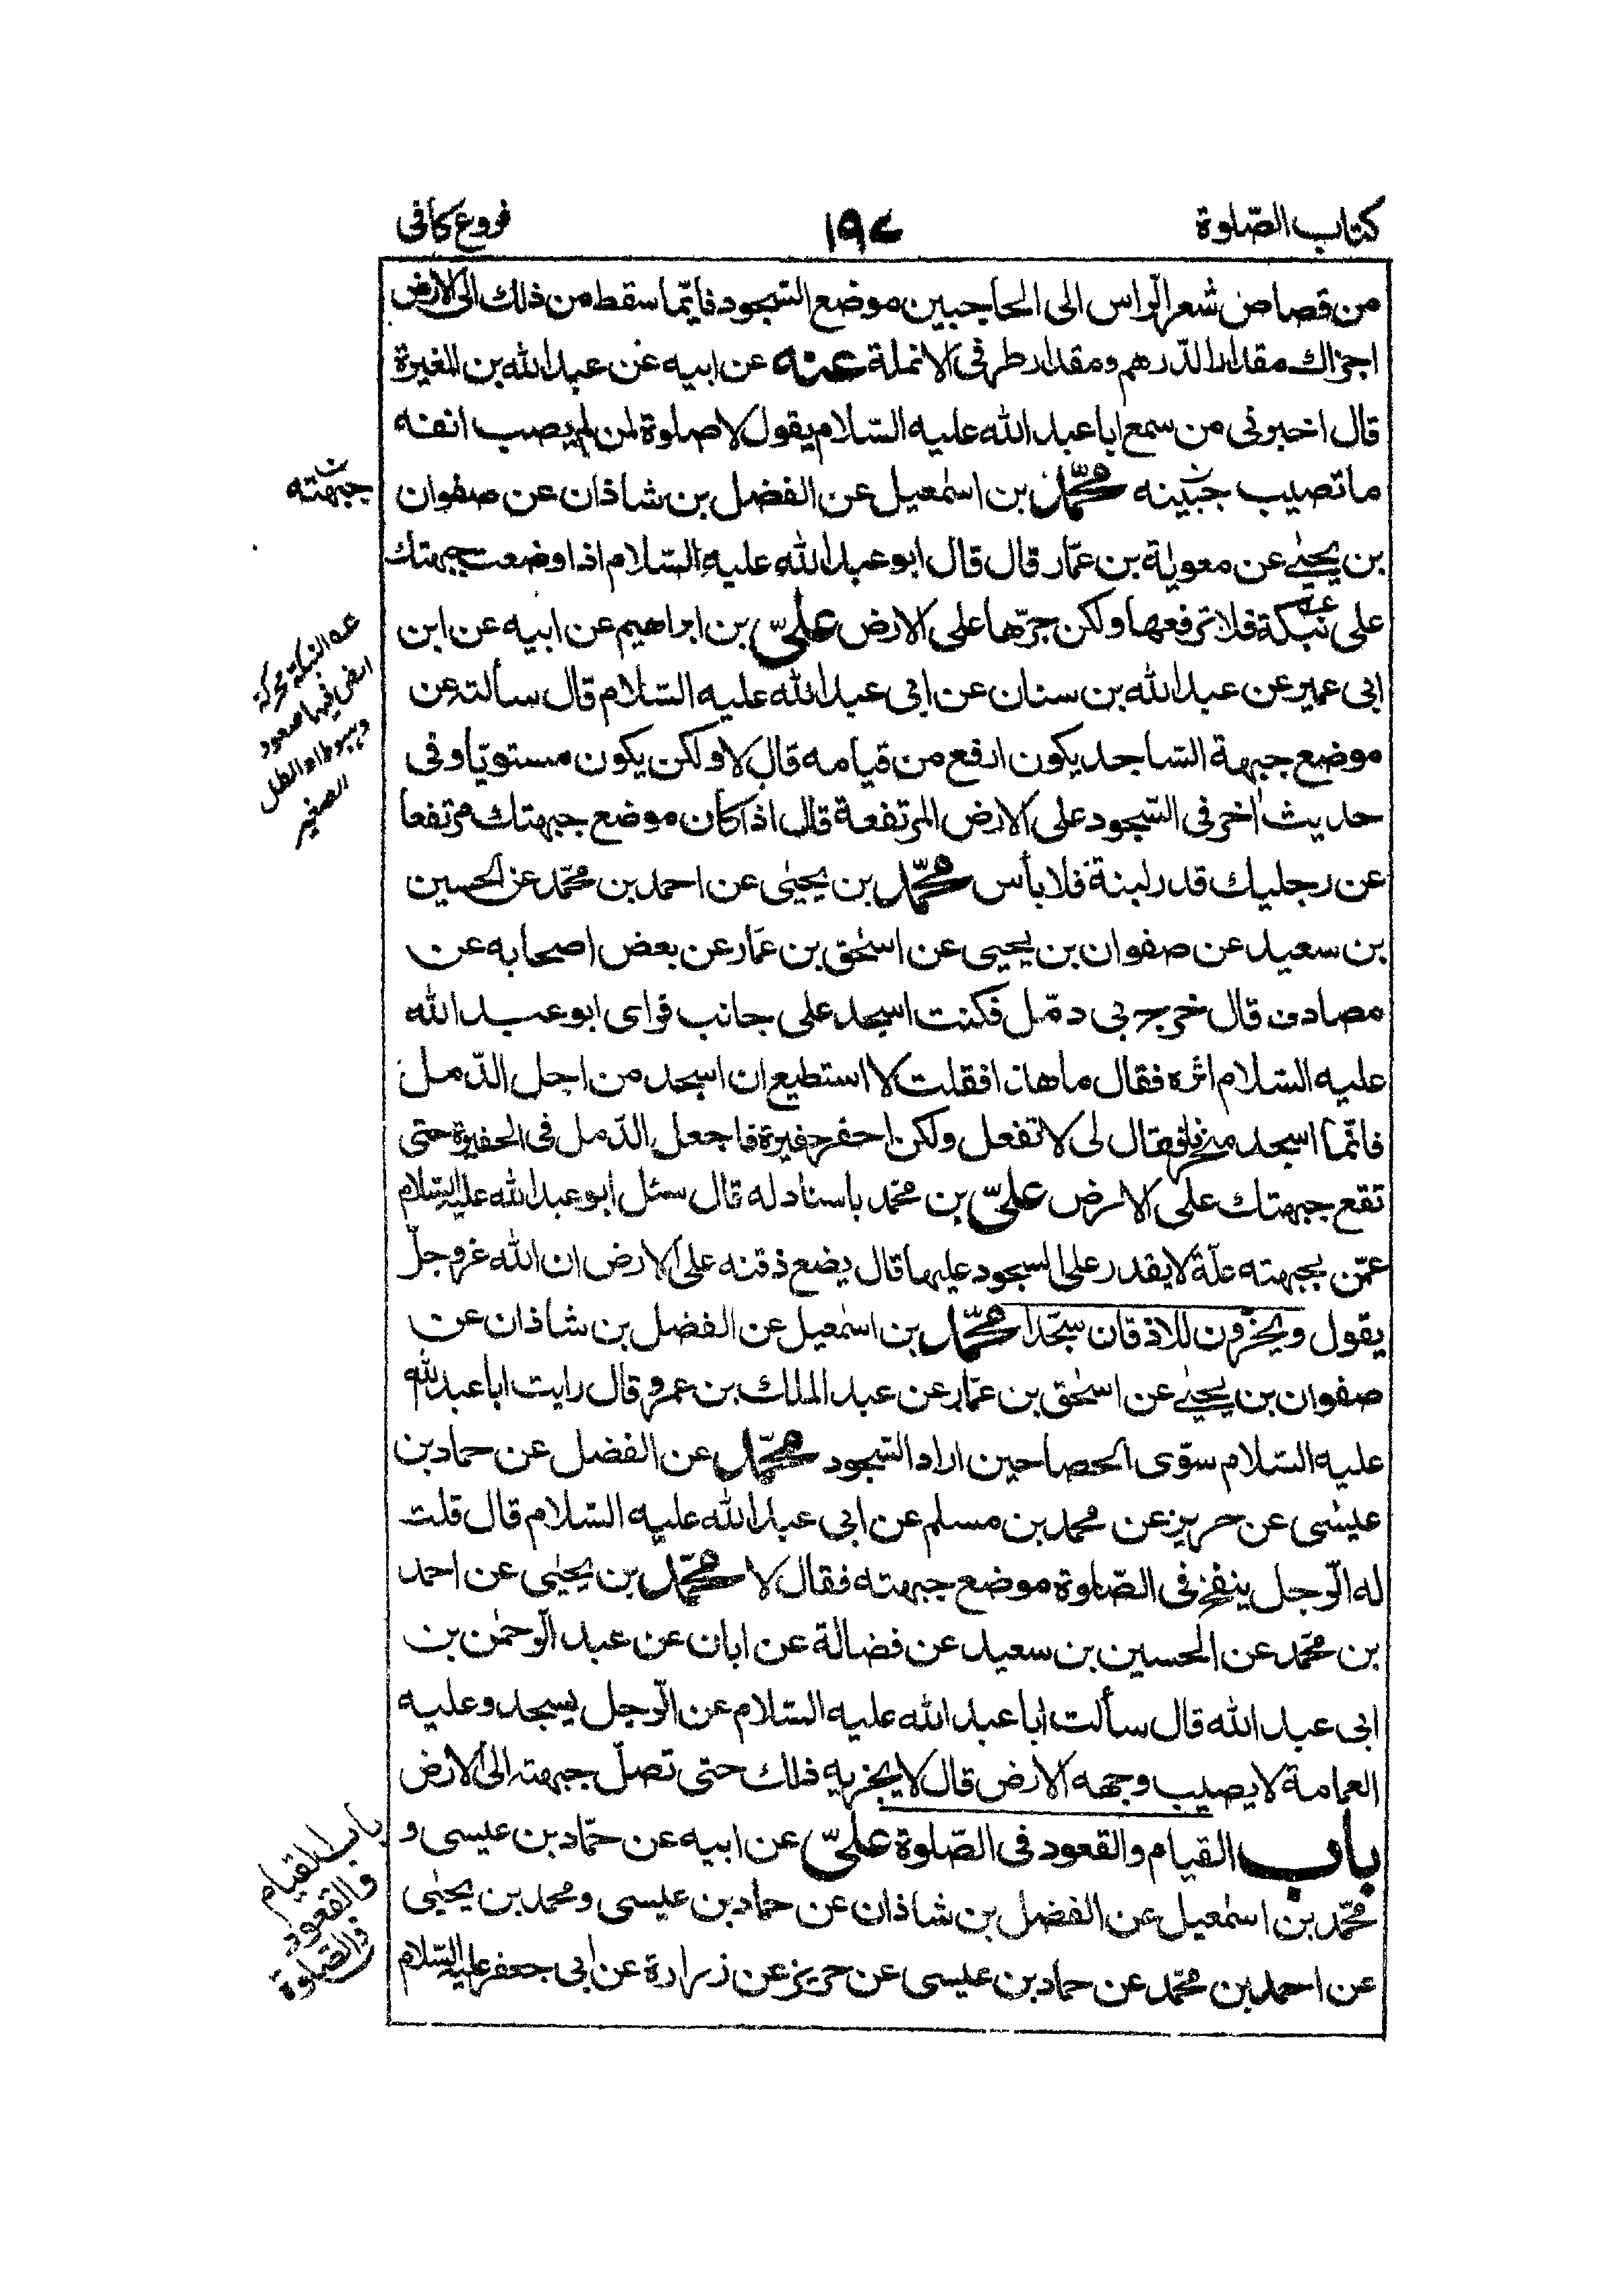 كتاب الصّلوة
١٩٧
فروع كافى
من قصاص شعر الرّاس الى الحاجبين موضع السّجود فايّما سقط من ذلك الى الارض
اجزاك مقدار الدّرهم ومقدار طرفى الانملة عنه عن ابيه عن عبد الله بن المغيرة
قال اخبرنى من سمع ابا عبد الله عليه السّلام يقول لا صلوة لمن لم يصب انفه
ما تصيب جبينه محمّد بن اسمٰعيل عن الفضل بن شاذان عن صفوان
جبهته
بن يحيٰى عن معوية بن عمّار قال قال ابو عبد الله عليه السّلام اذا وضعت جبهتك
على نبكة فلا ترفعها ولكن جرّها على الارض علىّ بن ابراهيم عن ابيه عن ابن
ابى عمير عن عبد الله بن سنان عن ابى عبد الله عليه السّلام قال سألته عن
موضع جبهة السّاجد يكون ارفع من قيامه قال لا ولكن يكون مستويّا وفى
حديث اخر فى السّجود على الارض المرتفعة قال اذا كان موضع جبهتك مرتفعا
عه النبكة محركة
ارض فيها صعود
وهبوط او التل
الصغير
عن رجليك قدر لبنة فلا بأس محمّد بن يحيٰى عن احمد بن محمّد عن الحسين
بن سعيد عن صفوان بن يحيى عن اسحٰق بن عمّار عن بعض اصحابه عن
مصادف قال خرج بى دمّل فكنت اسجد على جانب فراى ابو عبد الله
عليه السّلام اثره فقال ما هذا فقلت لا استطيع ان اسجد من اجل الدّمل
فانّما اسجد منحرفا فقال لى لا تفعل ولكن احفر حفيرة فاجعل الدّمل فى الحفيرة حتى
تقع جبهتك على الارض علىّ بن محمّد باسناد له قال سئل ابو عبد الله عليه السّلام
عمّن بجبهته علّة لا يقدر على السجود عليها قال يضع ذقنه على الارض ان الله عزوجلّ
يقول ويخرّون للاذقان سجّدا محمّد بن اسمٰعيل عن الفضل بن شاذان عن
صفوان بن يحيٰى عن اسحٰق بن عمّار عن عبد الملك بن عمرو قال رايت ابا عبد الله
عليه السّلام سوّى الحصا حين اراد السّجود محمّد عن الفضل عن حماد بن
عيسٰى عن حريز عن محمد بن مسلم عن ابى عبد الله عليه السّلام قال قلت
له الرّجل ينفخ فى الصّلوة موضع جبهته فقال لا محمّد بن يحيٰى عن احمد
بن محمّد عن الحسين بن سعيد عن فضالة عن ابان عن عبد الرّحمٰن بن
ابى عبد الله قال سألت ابا عبد الله عليه السّلام عن الرّجل يسجد وعليه
العمامة لا يصيب وجهه الارض قال لا يجزيه ذلك حتى تصلّ جبهته الى الارض
باب القيام والقعود فى الصّلوة علىّ عن ابيه عن حمّاد بن عيسى و
محمّد بن اسمٰعيل عن الفضل بن شاذان عن حماد بن عيسى ومحمد بن يحيٰى
عن احمد بن محمّد عن حماد بن عيسى عن حريز عن زرارة عن ابى جعفر عليه السّلام
باب القيام
والقعود
فى الصّلوة